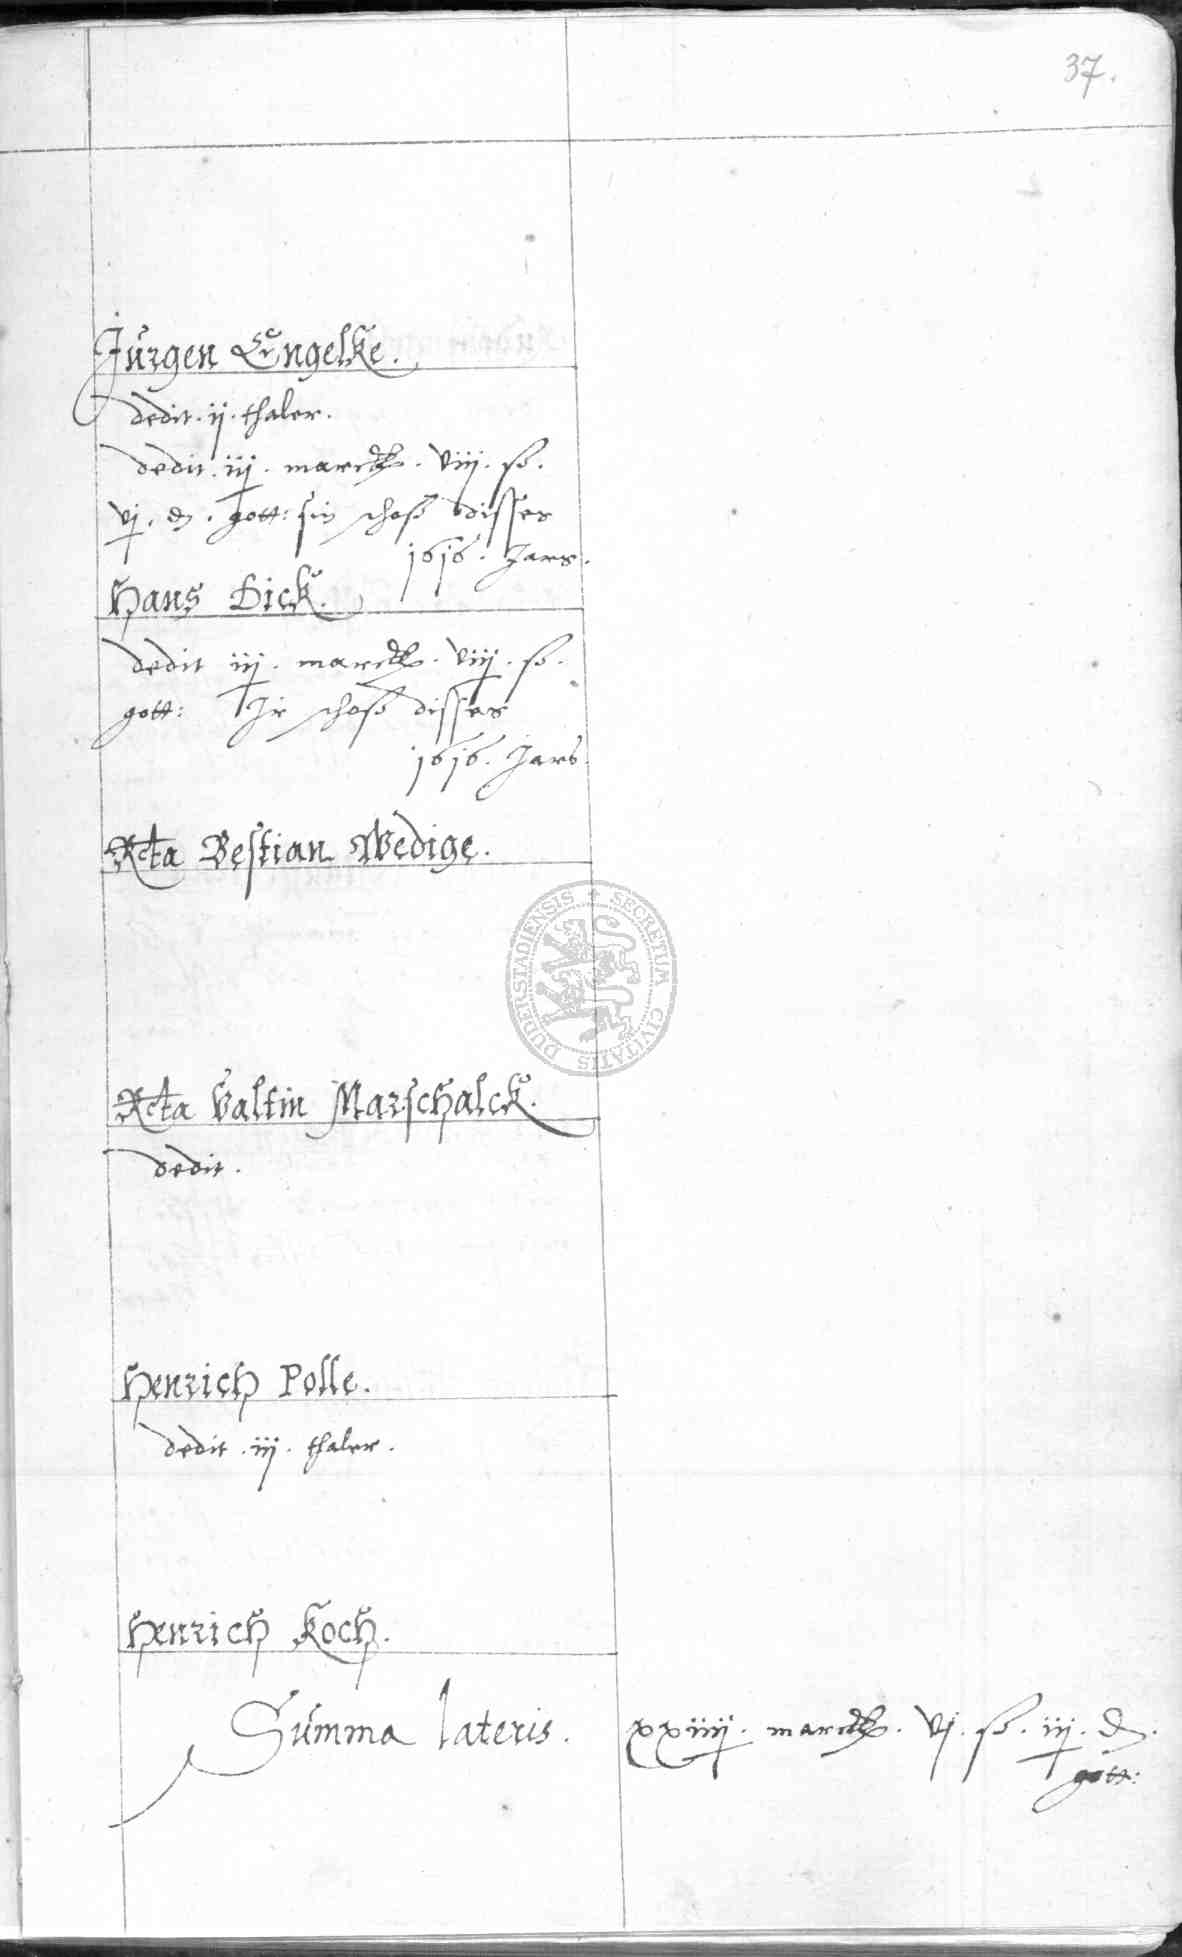 37.
Jürgen Engelke.
dedit . ij . thaler.
dedit . iij . marck . viij . ß .
vj . d . gott: sin schoß disses
1616 . Jars.
Hans Dick.
dedit iij . marck . viij . ß .
gott: Ir schoß disses
1616 . Jars.
Rcta Bestian Wedige.
SECRETUM CIVITATIS DUDERSTADIENSIS
Rcta Valtin Marschalck.
dedit .
Henrich Polle.
dedit . iij . thaler .
Henrich Koch.
Summa lateris . xxiiij . marck . vj . ß . iij . d .
gott: